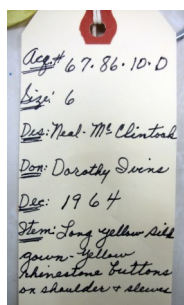 Acq.# 67.86.10.D
Size: 6
Des: Neal-McClintock
Don: Dorothy Ivins
Dec: 1964
Item: Long yellow silk
gown - yellow
rhinestone buttons
on shoulder + sleeves